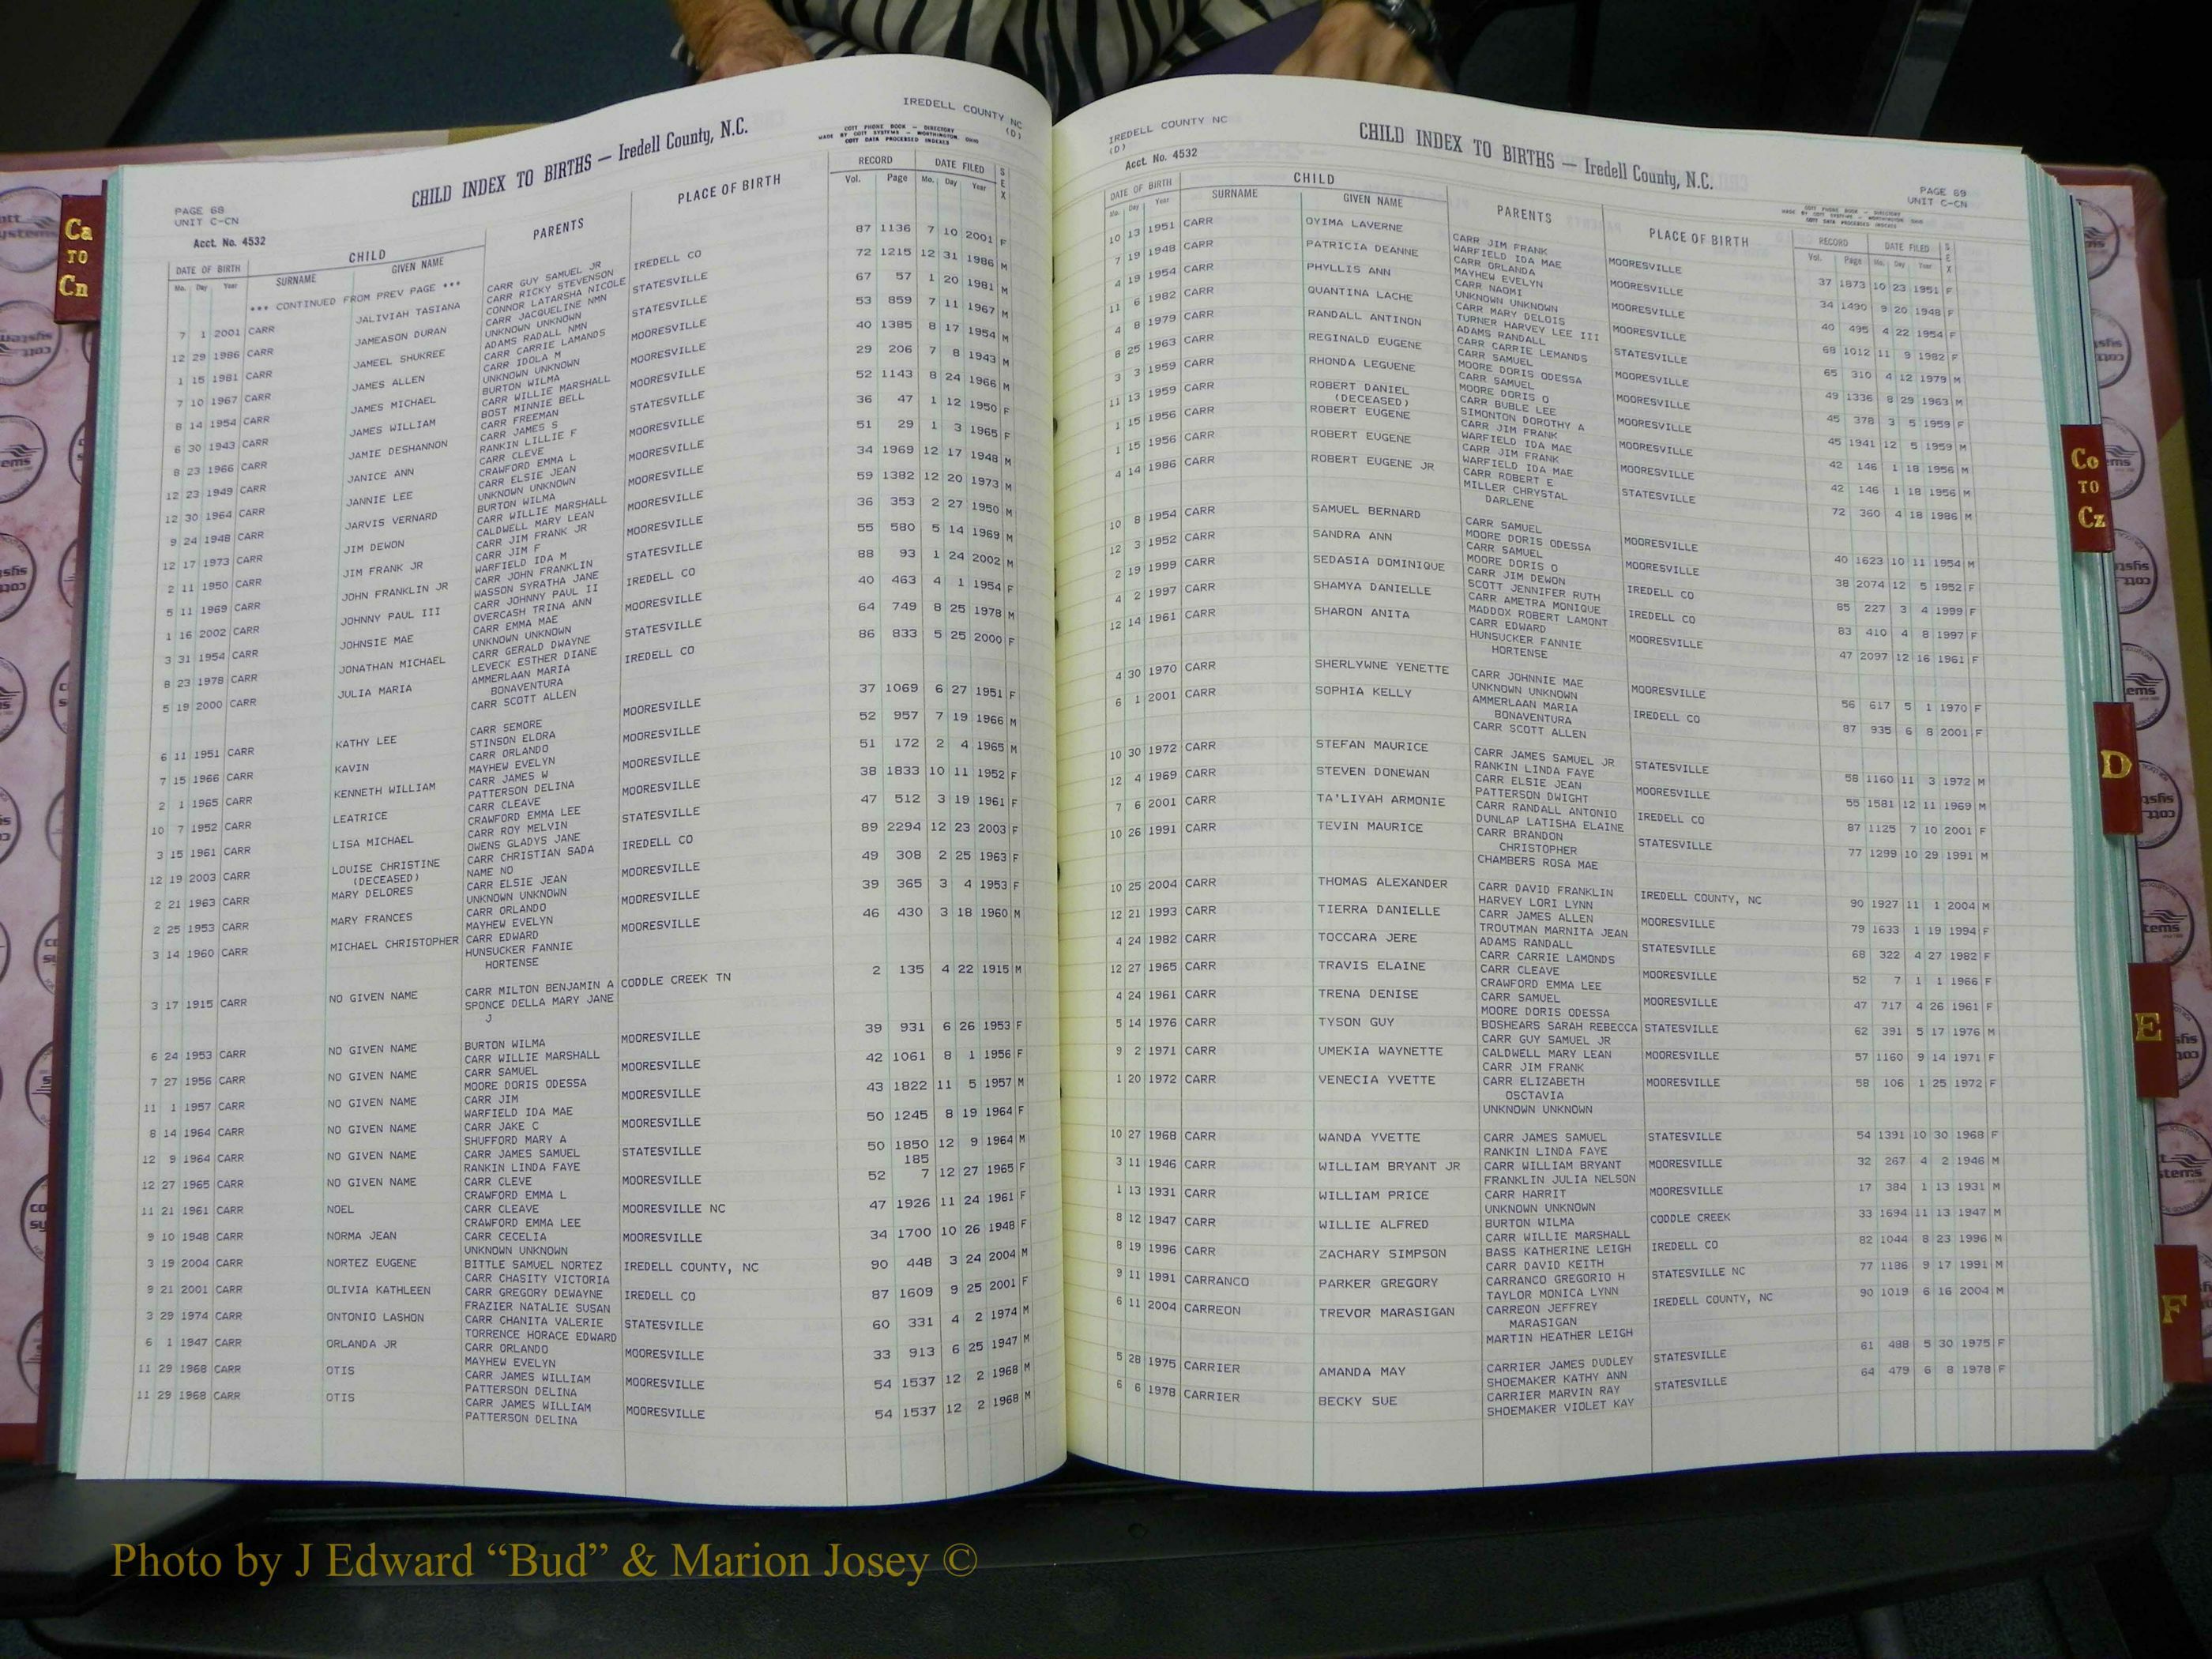 IREDELL COUNTY NC
(D)
CHILD INDEX TO BIRTHS — Iredell County, N.C.
COTT PHONE BOOK — DIRECTORY
MADE BY COTT SYSTEMS — WORTHINGTON OHIO
COTT DATA PROCESSED INDEXES
PAGE 68
UNIT C-CN
Acct. No. 4532
DATE OF BIRTH CHILD PARENTS PLACE OF BIRTH RECORD DATE FILED SEX
Mo. Day Year SURNAME GIVEN NAME Vol. Page Mo. Day Year
*** CONTINUED FROM PREV PAGE ***
7 1 2001 CARR JALIVIAH TASIANA CARR GUY SAMUEL JR IREDELL CO 87 1136 7 10 2001 F
CARR RICKY STEVENSON
12 29 1986 CARR JAMEASON DURAN CONNOR LATARSHA NICOLE STATESVILLE 72 1215 12 31 1986 M
CARR JACQUELINE NMN
1 15 1981 CARR JAMEEL SHUKREE UNKNOWN UNKNOWN STATESVILLE 67 57 1 20 1981 M
ADAMS RADALL NMN
7 10 1967 CARR JAMES ALLEN CARR CARRIE LAMANDS MOORESVILLE 53 859 7 11 1967 M
CARR IDOLA M
8 14 1954 CARR JAMES MICHAEL UNKNOWN UNKNOWN MOORESVILLE 40 1385 8 17 1954 M
BURTON WILMA
6 30 1943 CARR JAMES WILLIAM CARR WILLIE MARSHALL MOORESVILLE 29 206 7 8 1943 M
BOST MINNIE BELL
8 23 1966 CARR JAMIE DESHANNON CARR FREEMAN STATESVILLE 52 1143 8 24 1966 M
CARR JAMES S
12 23 1949 CARR JANICE ANN RANKIN LILLIE F MOORESVILLE 36 47 1 12 1950 F
CARR CLEVE
12 30 1964 CARR JANNIE LEE CRAWFORD EMMA L MOORESVILLE 51 29 1 3 1965 F
CARR ELSIE JEAN
9 24 1948 CARR JARVIS VERNARD UNKNOWN UNKNOWN MOORESVILLE 34 1969 12 17 1948 M
BURTON WILMA
12 17 1973 CARR JIM DEWON CARR WILLIE MARSHALL MOORESVILLE 59 1382 12 20 1973 M
CALDWELL MARY LEAN
CARR JIM FRANK JR
2 11 1950 CARR JIM FRANK JR CARR JIM F MOORESVILLE 36 353 2 27 1950 M
WARFIELD IDA M
5 11 1969 CARR JOHN FRANKLIN JR CARR JOHN FRANKLIN STATESVILLE 55 580 5 14 1969 M
WASSON SYRATHA JANE
1 16 2002 CARR JOHNNY PAUL III CARR JOHNNY PAUL II IREDELL CO 88 93 1 24 2002 M
OVERCASH TRINA ANN
3 31 1954 CARR JOHNSIE MAE CARR EMMA MAE MOORESVILLE 40 463 4 1 1954 F
UNKNOWN UNKNOWN
8 23 1978 CARR JONATHAN MICHAEL CARR GERALD DWAYNE STATESVILLE 64 749 8 25 1978 M
LEVECK ESTHER DIANE
5 19 2000 CARR JULIA MARIA AMMERLAAN MARIA IREDELL CO 86 833 5 25 2000 F
BONAVENTURA
CARR SCOTT ALLEN
6 11 1951 CARR KATHY LEE CARR SEMORE MOORESVILLE 37 1069 6 27 1951 F
STINSON ELORA
7 15 1966 CARR KAVIN CARR ORLANDO MOORESVILLE 52 957 7 19 1966 M
MAYHEW EVELYN
2 1 1965 CARR KENNETH WILLIAM CARR JAMES W MOORESVILLE 51 172 2 4 1965 M
PATTERSON DELINA
10 7 1952 CARR LEATRICE CARR CLEAVE MOORESVILLE 38 1833 10 11 1952 F
CRAWFORD EMMA LEE
3 15 1961 CARR LISA MICHAEL CARR ROY MELVIN STATESVILLE 47 512 3 19 1961 F
OWENS GLADYS JANE
12 19 2003 CARR LOUISE CHRISTINE CARR CHRISTIAN SADA IREDELL CO 89 2294 12 23 2003 F
(DECEASED) NAME NO
2 21 1963 CARR MARY DELORES CARR ELSIE JEAN MOORESVILLE 49 308 2 25 1963 F
UNKNOWN UNKNOWN
2 25 1953 CARR MARY FRANCES CARR ORLANDO MOORESVILLE 39 365 3 4 1953 F
MAYHEW EVELYN
3 14 1960 CARR MICHAEL CHRISTOPHER CARR EDWARD MOORESVILLE 46 430 3 18 1960 M
HUNSUCKER FANNIE
HORTENSE
3 17 1915 CARR NO GIVEN NAME CARR MILTON BENJAMIN A CODDLE CREEK TN 2 135 4 22 1915 M
SPONCE DELLA MARY JANE
J
6 24 1953 CARR NO GIVEN NAME BURTON WILMA MOORESVILLE 39 931 6 26 1953 F
CARR WILLIE MARSHALL
7 27 1956 CARR NO GIVEN NAME CARR SAMUEL MOORESVILLE 42 1061 8 1 1956 F
MOORE DORIS ODESSA
11 1 1957 CARR NO GIVEN NAME CARR JIM MOORESVILLE 43 1822 11 5 1957 M
WARFIELD IDA MAE
8 14 1964 CARR NO GIVEN NAME CARR JAKE C MOORESVILLE 50 1245 8 19 1964 F
SHUFFORD MARY A
12 9 1964 CARR NO GIVEN NAME CARR JAMES SAMUEL STATESVILLE 50 1850 12 9 1964 M
RANKIN LINDA FAYE 185
12 27 1965 CARR NO GIVEN NAME CARR CLEVE MOORESVILLE 52 7 12 27 1965 F
CRAWFORD EMMA L
11 21 1961 CARR NOEL CARR CLEAVE MOORESVILLE NC 47 1926 11 24 1961 F
CRAWFORD EMMA LEE
9 10 1948 CARR NORMA JEAN CARR CECELIA MOORESVILLE 34 1700 10 26 1948 F
UNKNOWN UNKNOWN
3 19 2004 CARR NORTEZ EUGENE BITTLE SAMUEL NORTEZ IREDELL COUNTY, NC 90 448 3 24 2004 M
CARR CHASITY VICTORIA
9 21 2001 CARR OLIVIA KATHLEEN CARR GREGORY DEWAYNE IREDELL CO 87 1609 9 25 2001 F
FRAZIER NATALIE SUSAN
3 29 1974 CARR ONTONIO LASHON CARR CHANITA VALERIE STATESVILLE 60 331 4 2 1974 M
TORRENCE HORACE EDWARD
6 1 1947 CARR ORLANDA JR CARR ORLANDO MOORESVILLE 33 913 6 25 1947 M
MAYHEW EVELYN
11 29 1968 CARR OTIS CARR JAMES WILLIAM MOORESVILLE 54 1537 12 2 1968 M
PATTERSON DELINA
11 29 1968 CARR OTIS CARR JAMES WILLIAM MOORESVILLE 54 1537 12 2 1968 M
PATTERSON DELINA
IREDELL COUNTY NC
(D)
CHILD INDEX TO BIRTHS — Iredell County, N.C.
Acct. No. 4532
PAGE 69
UNIT C-CN
COTT PHONE BOOK — DIRECTORY
MADE BY COTT SYSTEMS — WORTHINGTON OHIO
COTT DATA PROCESSED INDEXES
DATE OF BIRTH CHILD PARENTS PLACE OF BIRTH RECORD DATE FILED SEX
Mo. Day Year SURNAME GIVEN NAME Vol. Page Mo. Day Year
10 13 1951 CARR OYIMA LAVERNE CARR JIM FRANK MOORESVILLE 37 1873 10 23 1951 F
WARFIELD IDA MAE
7 19 1948 CARR PATRICIA DEANNE CARR ORLANDA MOORESVILLE 34 1490 9 20 1948 F
MAYHEW EVELYN
4 19 1954 CARR PHYLLIS ANN CARR NAOMI MOORESVILLE 40 495 4 22 1954 F
UNKNOWN UNKNOWN
11 6 1982 CARR QUANTINA LACHE CARR MARY DELOIS STATESVILLE 68 1012 11 9 1982 F
TURNER HARVEY LEE III
4 8 1979 CARR RANDALL ANTINON ADAMS RANDALL MOORESVILLE 65 310 4 12 1979 M
CARR CARRIE LEMANDS
8 25 1963 CARR REGINALD EUGENE CARR SAMUEL MOORESVILLE 49 1336 8 29 1963 M
MOORE DORIS ODESSA
3 3 1959 CARR RHONDA LEGUENE CARR SAMUEL MOORESVILLE 45 378 3 5 1959 F
MOORE DORIS O
11 13 1959 CARR ROBERT DANIEL CARR BUBLE LEE MOORESVILLE 45 1941 12 5 1959 M
(DECEASED) SIMONTON DOROTHY A
1 15 1956 CARR ROBERT EUGENE CARR JIM FRANK MOORESVILLE 42 146 1 18 1956 M
WARFIELD IDA MAE
1 15 1956 CARR ROBERT EUGENE CARR JIM FRANK STATESVILLE 42 146 1 18 1956 M
WARFIELD IDA MAE
4 14 1986 CARR ROBERT EUGENE JR CARR ROBERT E 72 360 4 18 1986 M
MILLER CHRYSTAL
DARLENE
10 8 1954 CARR SAMUEL BERNARD CARR SAMUEL MOORESVILLE 40 1623 10 11 1954 M
MOORE DORIS ODESSA
12 3 1952 CARR SANDRA ANN CARR SAMUEL MOORESVILLE 38 2074 12 5 1952 F
MOORE DORIS O
2 19 1999 CARR SEDASIA DOMINIQUE CARR JIM DEWON IREDELL CO 85 227 3 4 1999 F
SCOTT JENNIFER RUTH
4 2 1997 CARR SHAMYA DANIELLE CARR AMETRA MONIQUE IREDELL CO 83 410 4 8 1997 F
MADDOX ROBERT LAMONT
12 14 1961 CARR SHARON ANITA CARR EDWARD MOORESVILLE 47 2097 12 16 1961 F
HUNSUCKER FANNIE
HORTENSE
4 30 1970 CARR SHERLYWNE YENETTE CARR JOHNNIE MAE MOORESVILLE 56 617 5 1 1970 F
UNKNOWN UNKNOWN
6 1 2001 CARR SOPHIA KELLY AMMERLAAN MARIA IREDELL CO 87 935 6 8 2001 F
BONAVENTURA
CARR SCOTT ALLEN
10 30 1972 CARR STEFAN MAURICE CARR JAMES SAMUEL JR STATESVILLE 58 1160 11 3 1972 M
RANKIN LINDA FAYE
12 4 1969 CARR STEVEN DONEWAN CARR ELSIE JEAN MOORESVILLE 55 1581 12 11 1969 M
PATTERSON DWIGHT
7 6 2001 CARR TA'LIYAH ARMONIE CARR RANDALL ANTONIO IREDELL CO 87 1125 7 10 2001 F
DUNLAP LATISHA ELAINE
10 26 1991 CARR TEVIN MAURICE CARR BRANDON STATESVILLE 77 1299 10 29 1991 M
CHRISTOPHER
CHAMBERS ROSA MAE
10 25 2004 CARR THOMAS ALEXANDER CARR DAVID FRANKLIN IREDELL COUNTY, NC 90 1927 11 1 2004 M
HARVEY LORI LYNN
12 21 1993 CARR TIERRA DANIELLE CARR JAMES ALLEN MOORESVILLE 79 1633 1 19 1994 F
TROUTMAN MARNITA JEAN
4 24 1982 CARR TOCCARA JERE ADAMS RANDALL STATESVILLE 68 322 4 27 1982 F
CARR CARRIE LAMONDS
12 27 1965 CARR TRAVIS ELAINE CARR CLEAVE MOORESVILLE 52 7 1 1 1966 F
CRAWFORD EMMA LEE
4 24 1961 CARR TRENA DENISE CARR SAMUEL MOORESVILLE 47 717 4 26 1961 F
MOORE DORIS ODESSA
5 14 1976 CARR TYSON GUY BOSHEARS SARAH REBECCA STATESVILLE 62 391 5 17 1976 M
CARR GUY SAMUEL JR
9 2 1971 CARR UMEKIA WAYNETTE CALDWELL MARY LEAN MOORESVILLE 57 1160 9 14 1971 F
CARR JIM FRANK
1 20 1972 CARR VENECIA YVETTE CARR ELIZABETH MOORESVILLE 58 106 1 25 1972 F
OSCTAVIA
UNKNOWN UNKNOWN
10 27 1968 CARR WANDA YVETTE CARR JAMES SAMUEL STATESVILLE 54 1391 10 30 1968 F
RANKIN LINDA FAYE
3 11 1946 CARR WILLIAM BRYANT JR CARR WILLIAM BRYANT MOORESVILLE 32 267 4 2 1946 M
FRANKLIN JULIA NELSON
1 13 1931 CARR WILLIAM PRICE CARR HARRIT MOORESVILLE 17 384 1 13 1931 M
UNKNOWN UNKNOWN
8 12 1947 CARR WILLIE ALFRED BURTON WILMA CODDLE CREEK 33 1694 11 13 1947 M
CARR WILLIE MARSHALL
8 19 1996 CARR ZACHARY SIMPSON BASS KATHERINE LEIGH IREDELL CO 82 1044 8 23 1996 M
CARR DAVID KEITH
9 11 1991 CARRANCO PARKER GREGORY CARRANCO GREGORIO H STATESVILLE NC 77 1186 9 17 1991 M
TAYLOR MONICA LYNN
6 11 2004 CARREON TREVOR MARASIGAN CARREON JEFFREY IREDELL COUNTY, NC 90 1019 6 16 2004 M
MARASIGAN
MARTIN HEATHER LEIGH
5 28 1975 CARRIER AMANDA MAY CARRIER JAMES DUDLEY STATESVILLE 61 488 5 30 1975 F
SHOEMAKER KATHY ANN
6 6 1978 CARRIER BECKY SUE CARRIER MARVIN RAY STATESVILLE 64 479 6 8 1978 F
SHOEMAKER VIOLET KAY
Ca
TO
Cn
Co
TO
Cz
D
E
F
Photo by J Edward “Bud” & Marion Josey ©